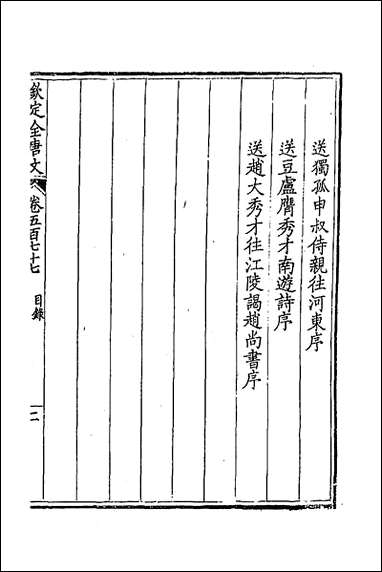 送獨孤申叔侍親往河東序
送豆盧膺秀才南遊詩序
送趙大秀才往江陵謁趙尚書序
欽定全唐文
卷五百七十七
目錄
二